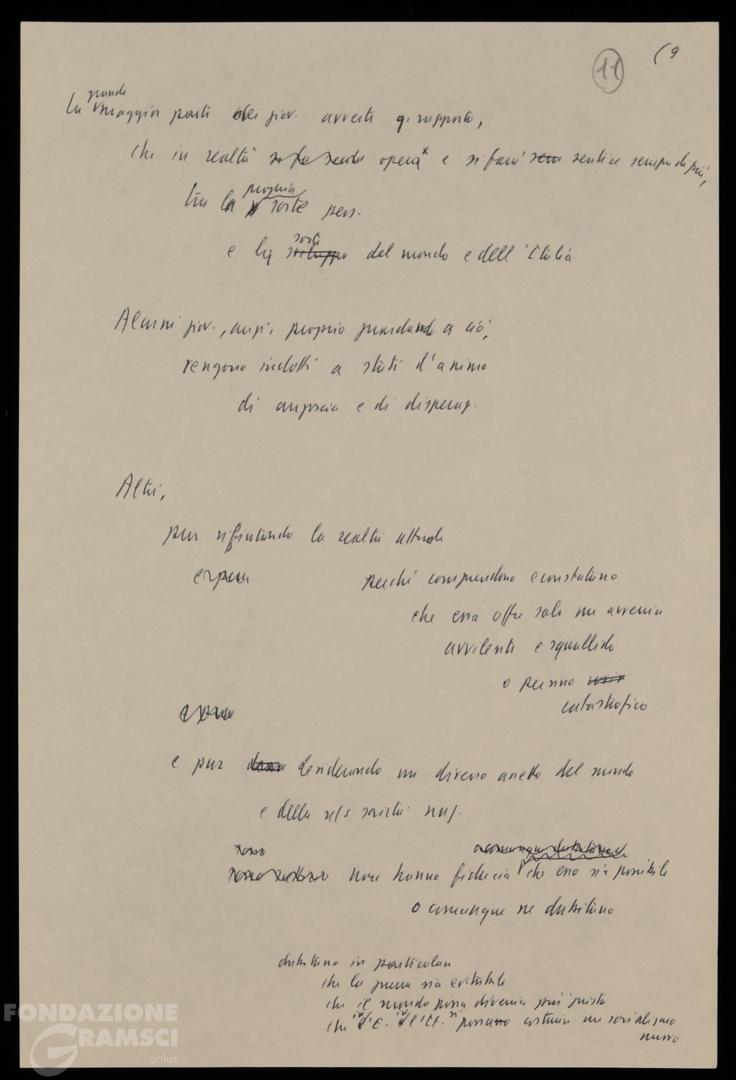 (9
11
grande
La maggior parte dei giov. avverte q. rapporto,
che in realtà opera x e si farà sentire sempre di più,
propria
tra la sorte pers.
sorte
e la sviluppo del mondo e dell'Italia
Alcuni giov., anzi, proprio guardando a ciò,
vengono indotti a stati d'animo
di angoscia e di disperaz.
Altri,
pur rifiutando la realtà attuale
e pur
perché comprendono e constatano
che essa offre solo un avvenire
avvilente e squallido
o persino
catastrofico
e pur desiderando un diverso assetto del mondo
e della ns/s società naz.
non hanno fiducia che esso sia possibile
o comunque ne dubitano
dubitano in particolare
che la guerra sia evitabile
che il mondo possa divenire più giusto
che possano costruire un socialismo
nuovo
FONDAZIONE
GRAMSCI
onlus